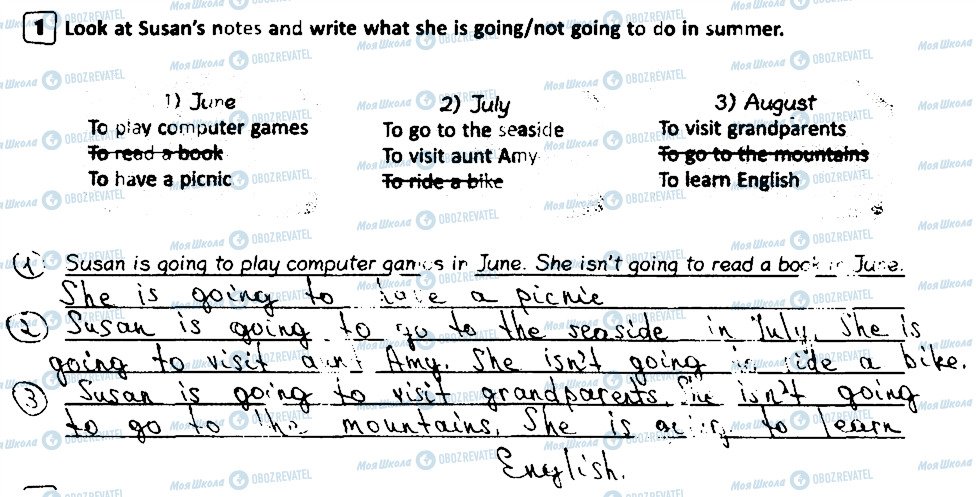 1 Look at Susan's notes and write what she is going/not going to do in summer.
1) June
To play computer games
To read a book
To have a picnic
2) July
To go to the seaside
To visit aunt Amy
To ride a bike
3) August
To visit grandparents
To go to the mountains
To learn English
1 Susan is going to play computer games in June. She isn't going to read a book in June.
She is going to have a picnic
2 Susan is going to go to the seaside in July. She is
going to visit aunt Amy. She isn't going to ride a bike.
3 Susan is going to visit grandparents. She isn't going
to go to the mountains. She is going to learn
English.
Моя Школа OBOZREVATEL